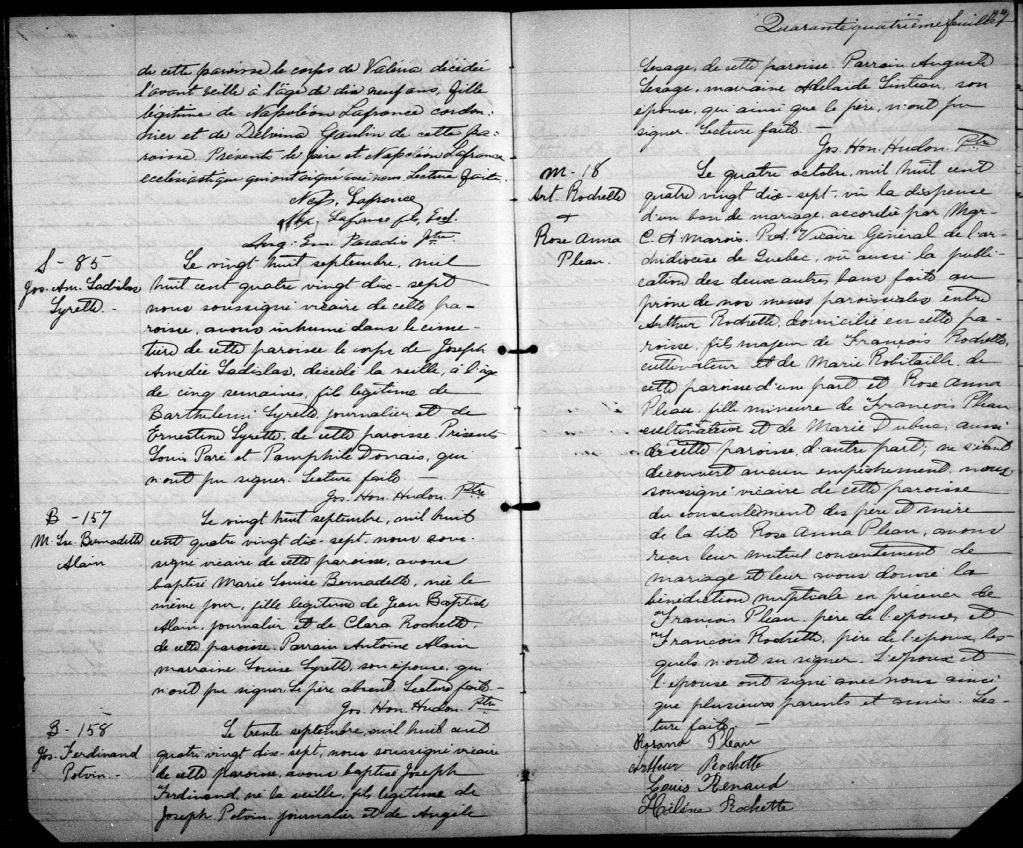 de cette paroisse le corps de Valéria décédée
l'avant veille à l'âge de dix neuf ans, fille
légitime de Napoléon Lafrance cordon-
nier et de Delvina Gaulin de cette pa-
roisse. Présents le père et Napoléon Lafrance
ecclésiastique qui ont signé avec nous. Lecture faite.
Nap. Lafrance
Nap. Lafrance fils, Eccl.
Aug. Em. Paradis Ptre
S - 85
Jos. Am. Ladislas
Lyrette.
Le vingt huit septembre, mil
huit cent quatre vingt dix-sept
nous soussigné vicaire de cette pa-
roisse, avons inhumé dans le cime-
tière de cette paroisse le corps de Joseph
Amedée Ladislas, décédé la veille, à l'âge
de cinq semaines, fils légitime de
Barthelemi Lyrette, journalier et de
Ernestine Lyrette, de cette paroisse. Présents
Louis Paré et Pamphile Donais, qui
n'ont pu signer. Lecture faite
Jos. Hon. Hudon Ptre
B - 157
M. Lse. Bernadette
Alain
Le vingt huit septembre, mil huit
cent quatre vingt dix-sept nous sous-
signé vicaire de cette paroisse, avons
baptisé Marie Louise Bernadette, née le
même jour, fille légitime de Jean Baptiste
Alain, journalier et de Clara Rochette
de cette paroisse. Parrain Antoine Alain
marraine Louise Lyrette, son épouse, qui
n'ont pu signer. Le père absent. Lecture faite
Jos. Hon. Hudon. Ptre
B - 158
Jos. Ferdinand
Potvin.
Le trente septembre, mil huit cent
quatre vingt dix-sept, nous soussigné vicaire
de cette paroisse, avons baptisé Joseph
Ferdinand, né la veille, fils légitime de
Joseph Potvin, journalier et de Angèle
Quarante quatrième feuillet 44
Lesage, de cette paroisse. Parrain Auguste
Lesage, marraine Adelaide Linteau, son
épouse, qui ainsi que le père, n'ont pu
signer. Lecture faite
Jos. Hon. Hudon Ptre
M - 18
Art. Rochette
+
Rose Anna
Pleau.
Le quatre octobre, mil huit cent
quatre vingt dix-sept, vu la dispense
d'un ban de mariage, accordée par Mgr
C. A. Marois, P.A. Vicaire Général de l'ar-
chidiocèse de Québec, vu aussi la publi-
cation des deux autres bans faite au
prône de nos messes paroissiales entre
Arthur Rochette, domicilié en cette pa-
roisse, fils majeur de François Rochette,
cultivateur et de Marie Robitaille, de
cette paroisse d'une part et Rose Anna
Pleau, fille mineure de François Pleau
cultivateur et de Marie Dubuc, aussi
de cette paroisse, d'autre part; ne s'étant
découvert aucun empêchement, nous
soussigné vicaire de cette paroisse
du consentement des père et mère
de la dite Rose Anna Pleau, avons
reçu leur mutuel consentement de
mariage et leur avons donné la
bénédiction nuptiale en présence de
François Pleau, père de l'épouse, et
François Rochette, père de l'époux, les-
quels n'ont su signer. L'époux et
l'épouse ont signé avec nous ainsi
que plusieurs parents et amis. Lec-
ture faite.
Rosana Pleau
Arthur Rochette
Louis Renaud
Hélène Rochette